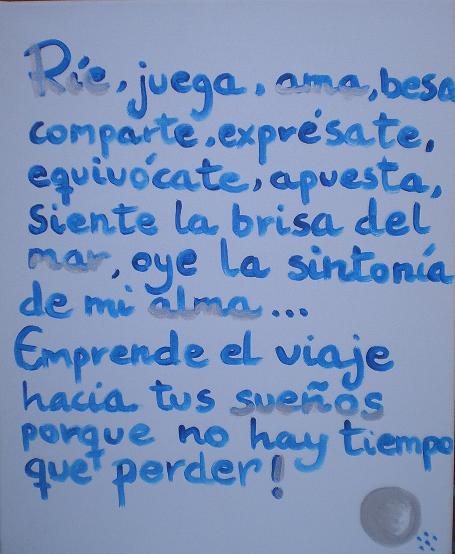 Ríe, juega, ama, besa
comparte, exprésate,
equivócate, apuesta,
Siente la brisa del
mar, oye la sintonía
de mi alma...
Emprende el viaje
hacia tus sueños
porque no hay tiempo
que perder!